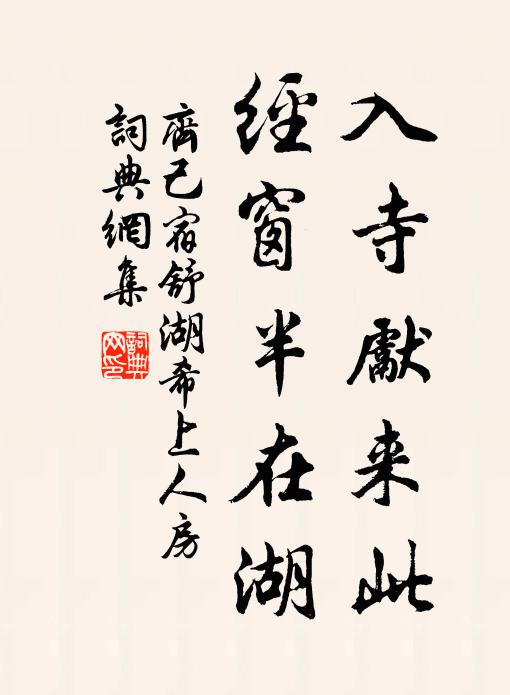 入寺獻来此
經窗半在湖
齊己宿舒湖希上人房
詞典網集
詞典
网印